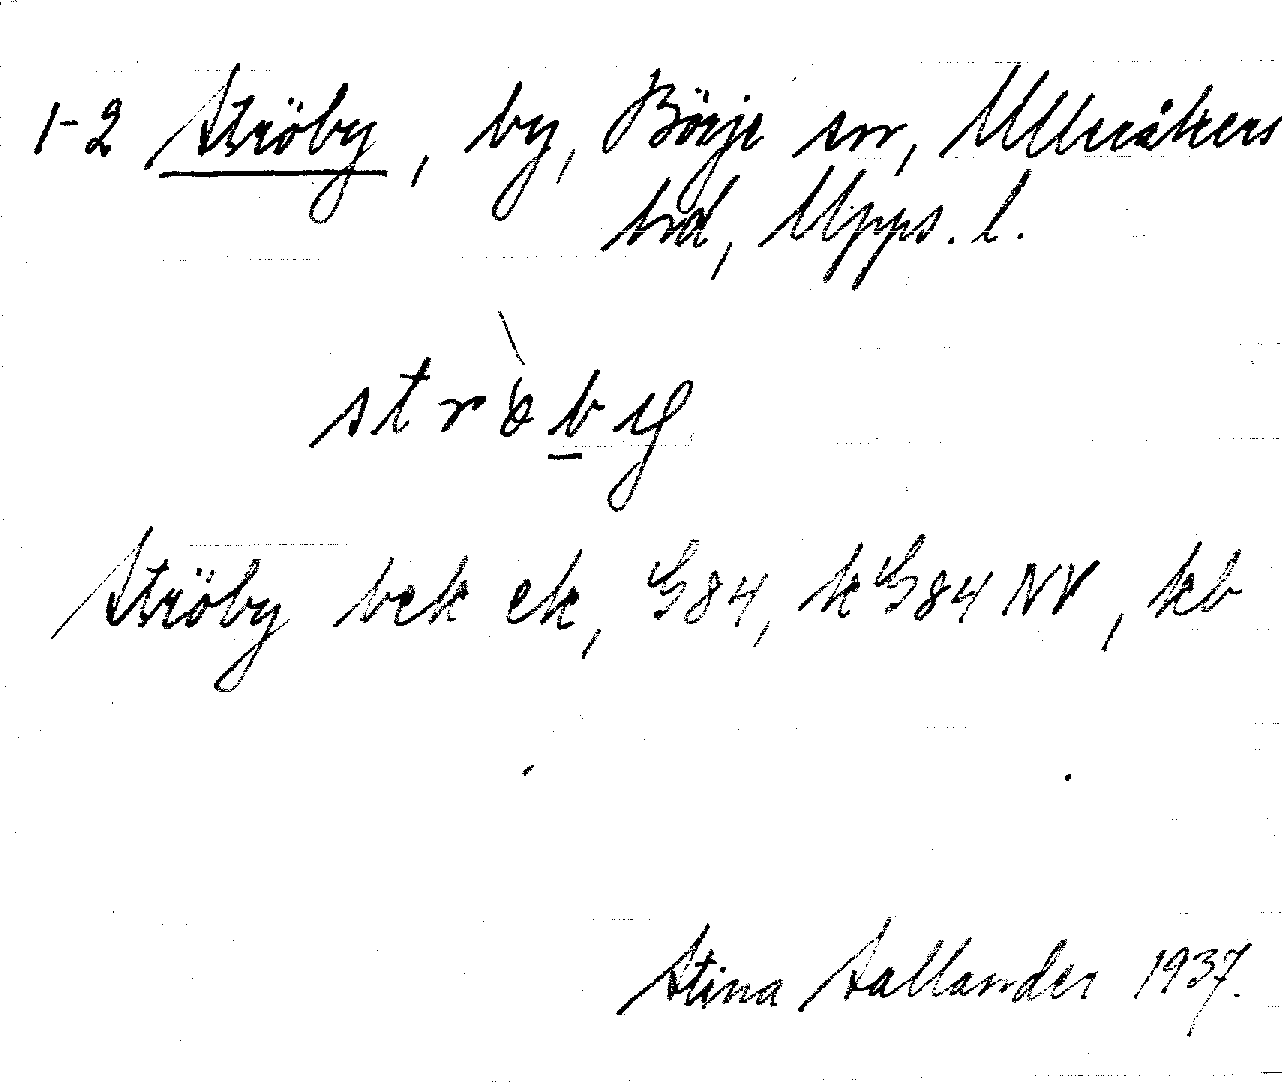 1-2 Ströby, by, Börje sn, Ulleråkers
hd, Upps. l.
ströby
Ströby bek ek, G84, kG84 NV, kb
Stina Sallander 1937.